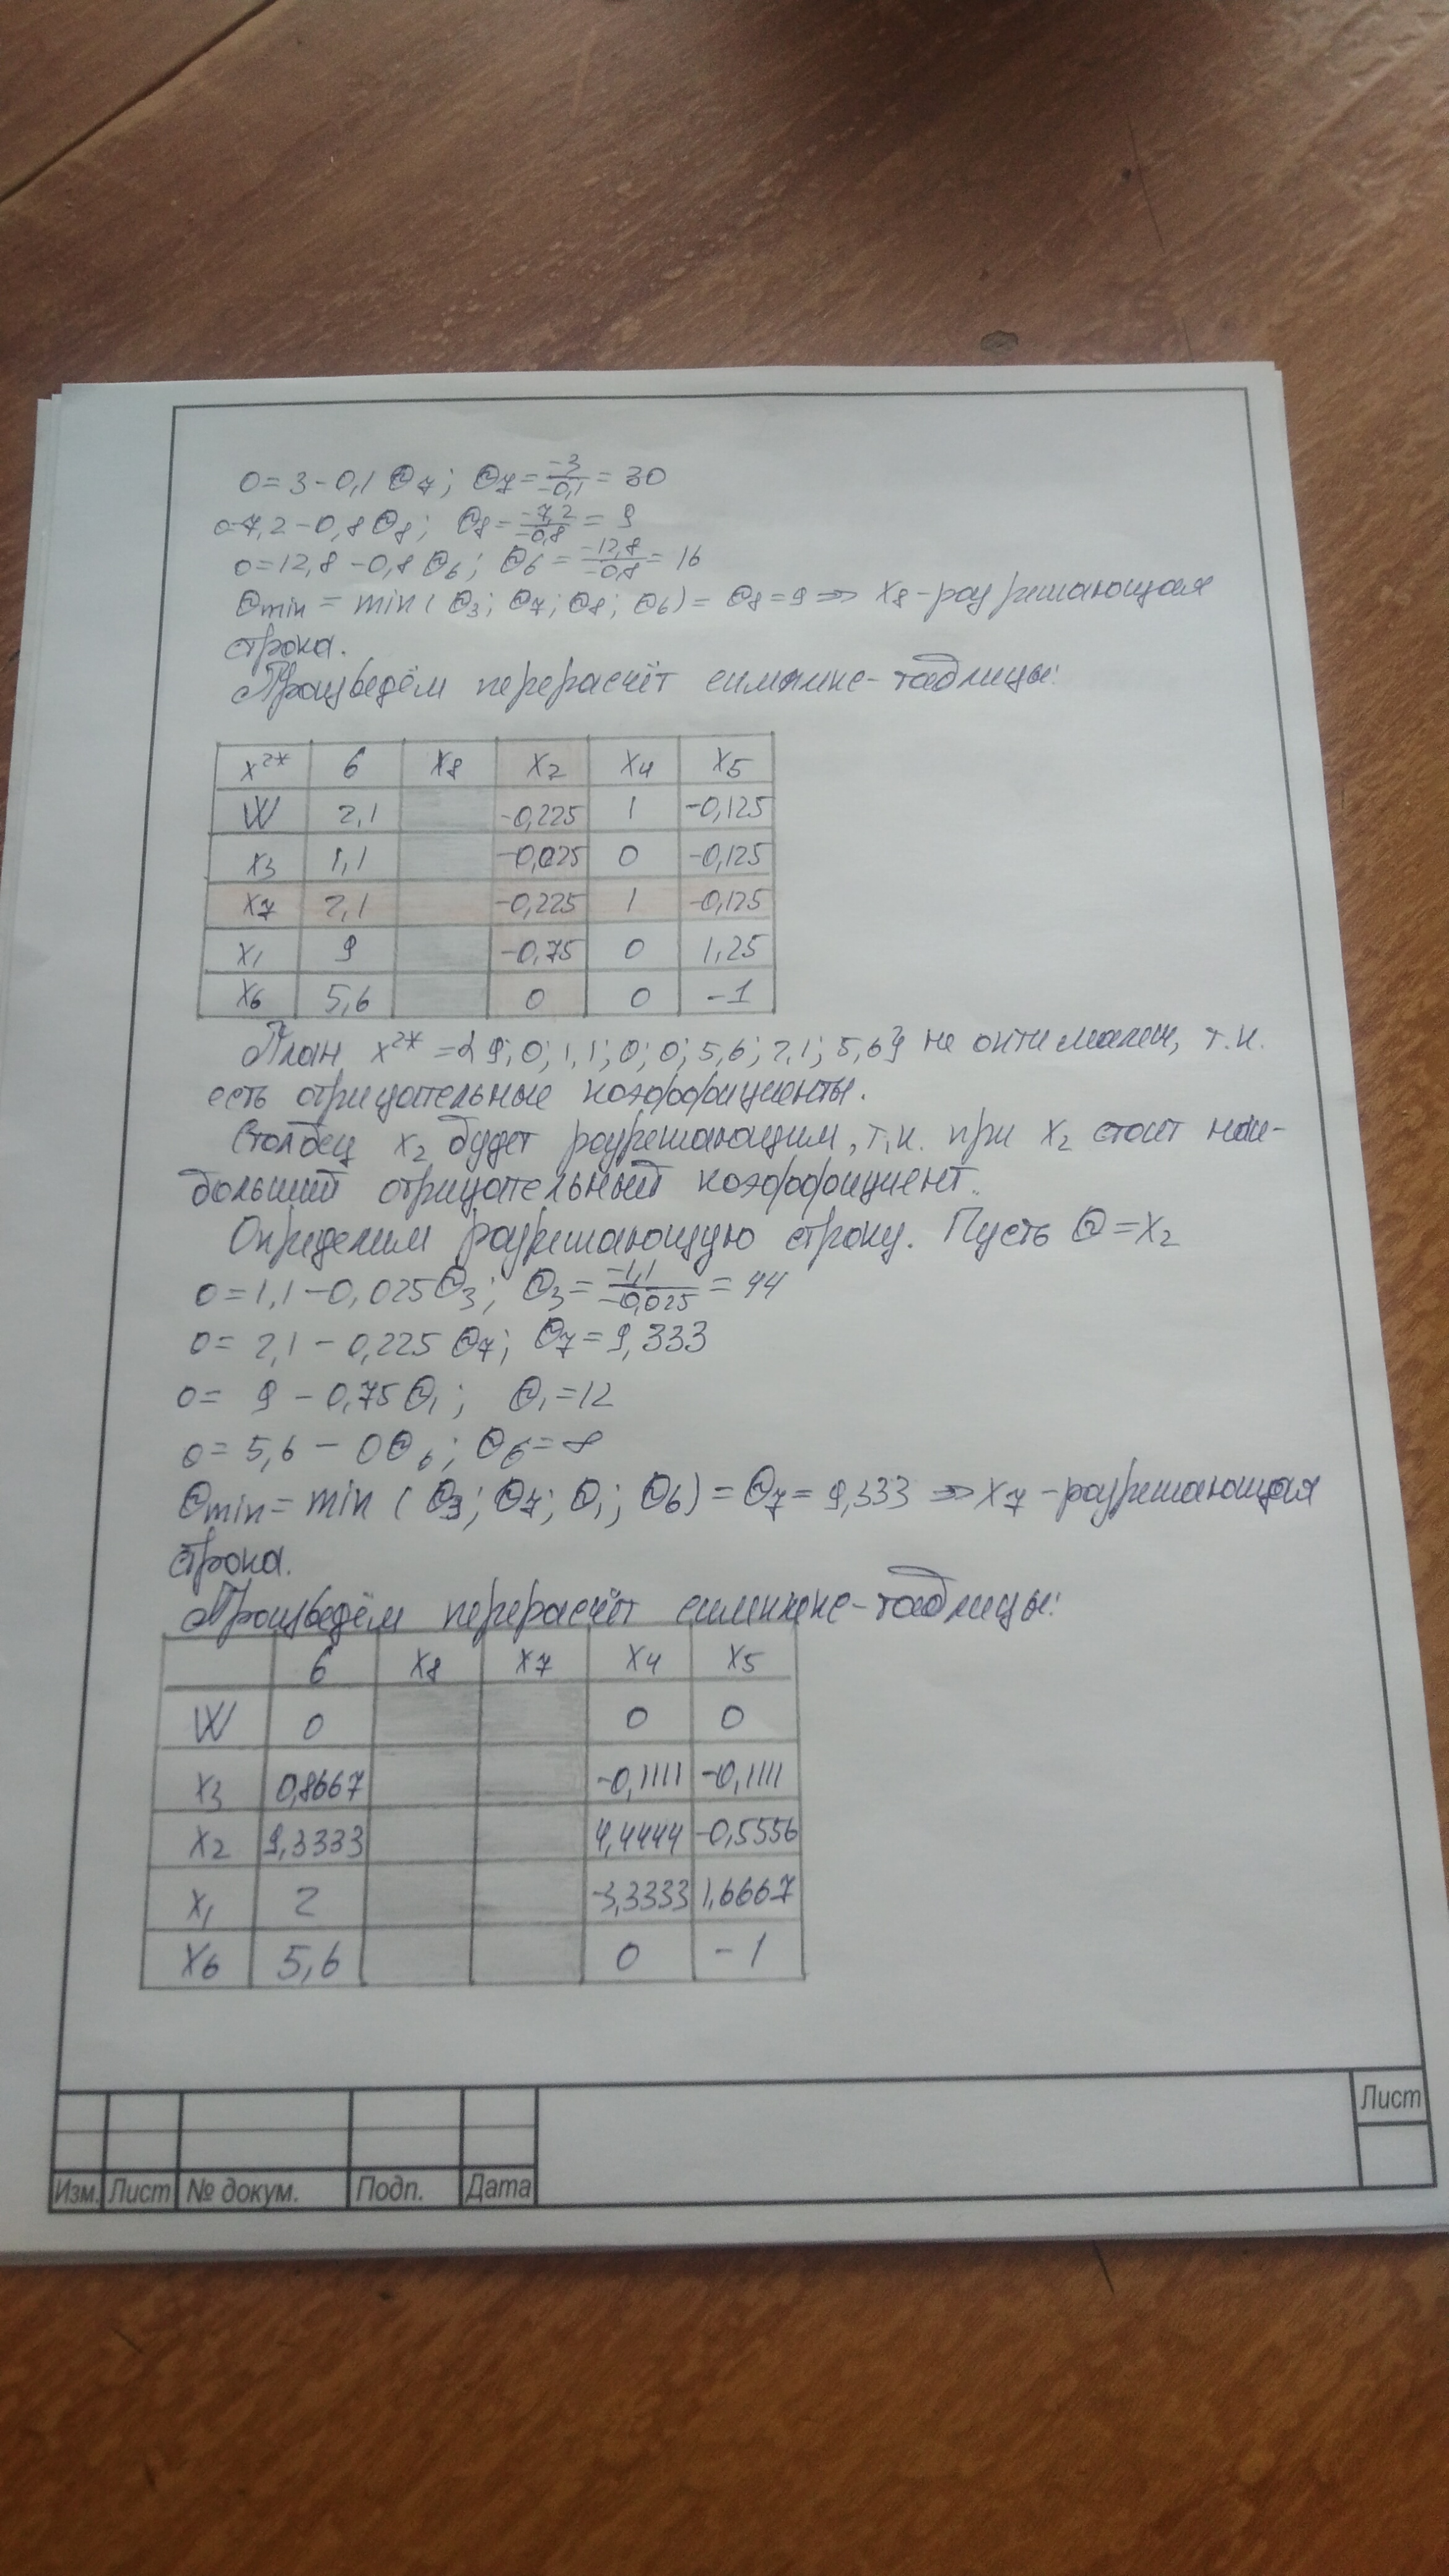 0 = 3 - 0,1 Θ7; Θ7 = -3/-0,1 = 30
0=7,2 - 0,8 Θ8; Θ8 = -7,2/-0,8 = 9
0 = 12,8 - 0,8 Θ6; Θ6 = -12,8/-0,8 = 16
Θmin = min (Θ3; Θ7; Θ8; Θ6) = Θ8 = 9 => X8 - разрешающая
строка.
Произведём перерасчёт симплекс-таблицы:
X2* б X8 X2 X4 X5
W 2,1 -0,225 1 -0,125
X3 1,1 -0,025 0 -0,125
X7 2,1 -0,225 1 -0,125
X1 9 -0,75 0 1,25
X6 5,6 0 0 -1
План X2* = {9; 0; 1,1; 0; 0; 5,6; 2,1; 5,6} не оптимален, т.к.
есть отрицательные коэффициенты.
Столбец X2 будет разрешающим, т.к. при X2 стоит наи-
больший отрицательный коэффициент.
Определим разрешающую строку. Пусть Θ = X2
0 = 1,1 - 0,025 Θ3; Θ3 = -1,1/-0,025 = 44
0 = 2,1 - 0,225 Θ7; Θ7 = 9,333
0 = 9 - 0,75 Θ1; Θ1 = 12
0 = 5,6 - 0Θ6; Θ6 = ∞
Θmin = min (Θ3; Θ7; Θ1; Θ6) = Θ7 = 9,333 => X7 - разрешающая
строка.
Произведём перерасчёт симплекс-таблицы:
б X8 X7 X4 X5
W 0 0 0
X3 0,8667 -0,1111 -0,1111
X2 9,3333 4,4444 -0,5556
X1 2 -3,3333 1,6667
X6 5,6 0 -1
Лист
Изм. Лист № докум. Подп. Дата